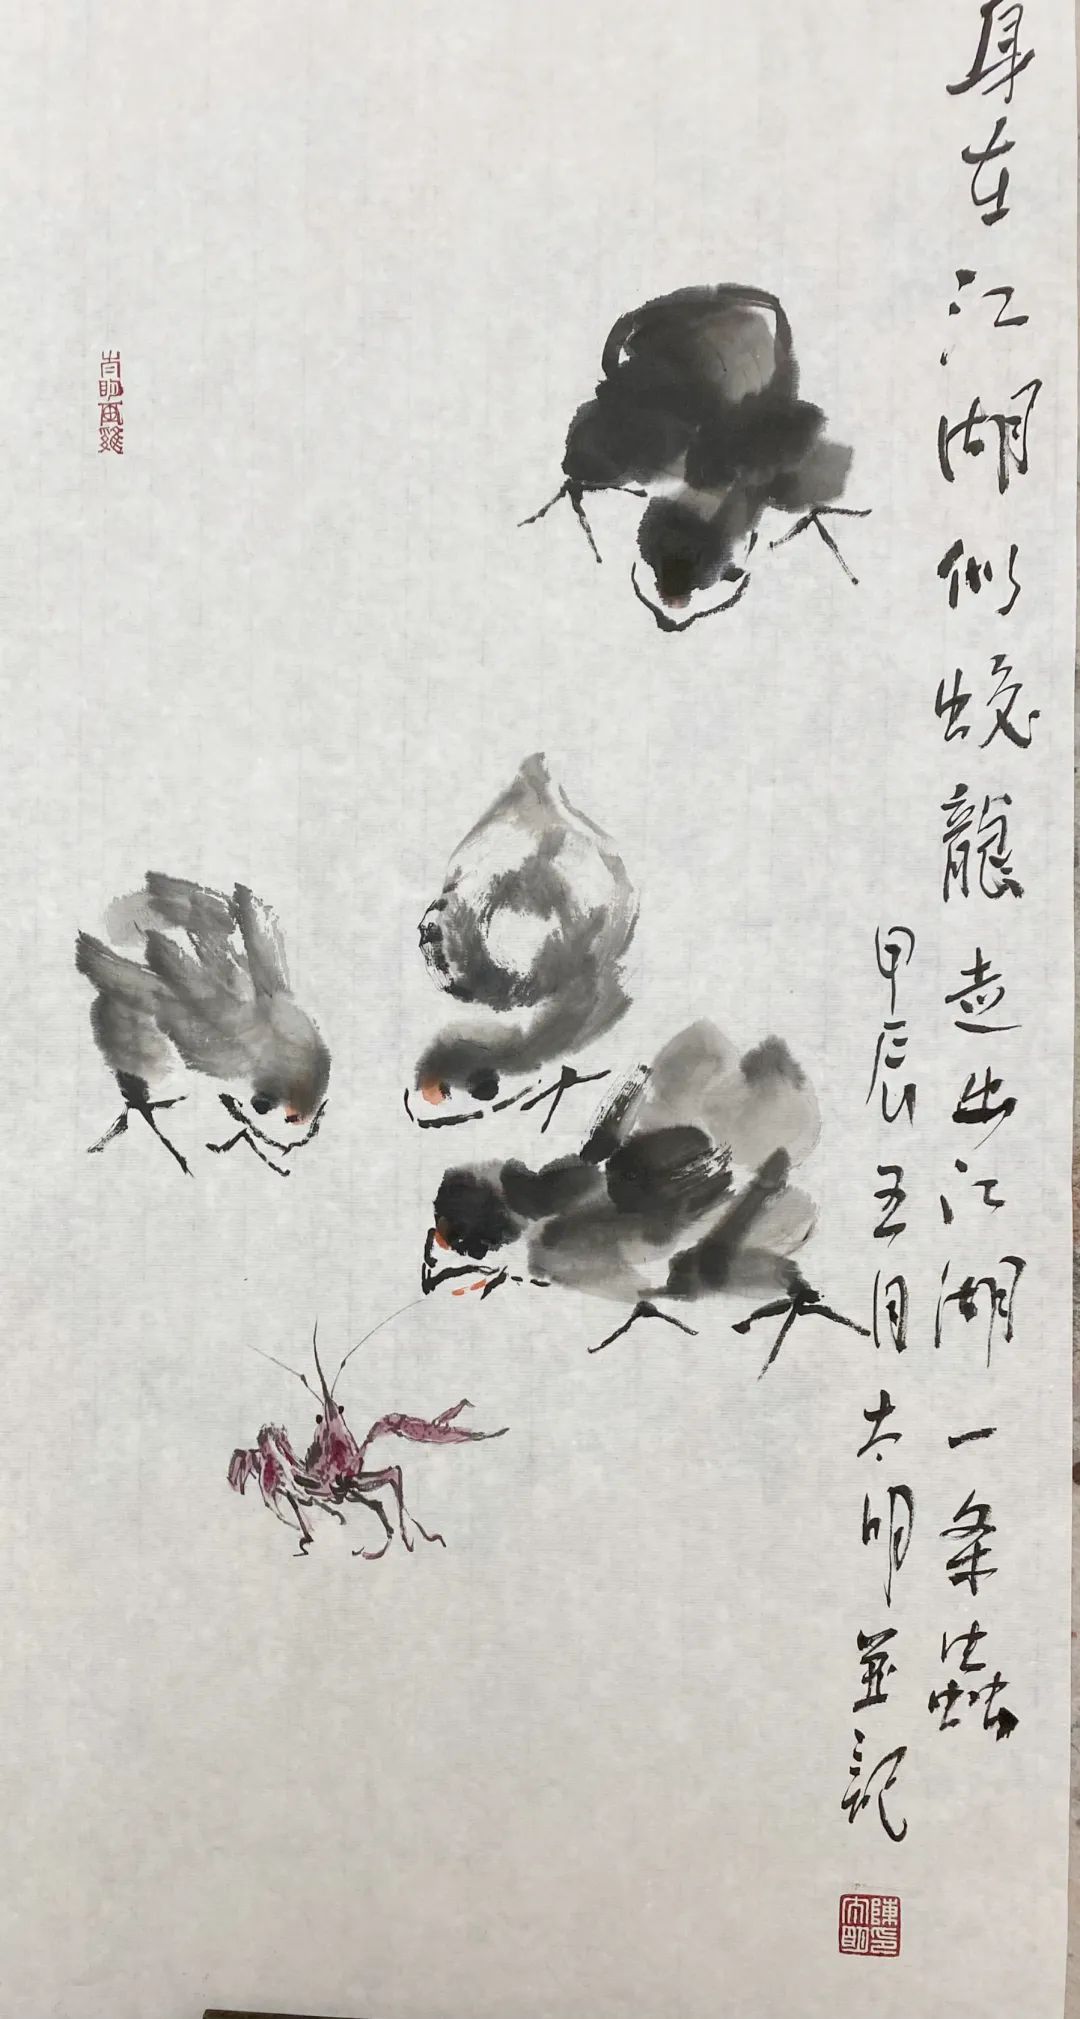 身在江湖似蛟龍走出江湖一条蟲
甲辰五月太明並記
陳太明印
太明画雞